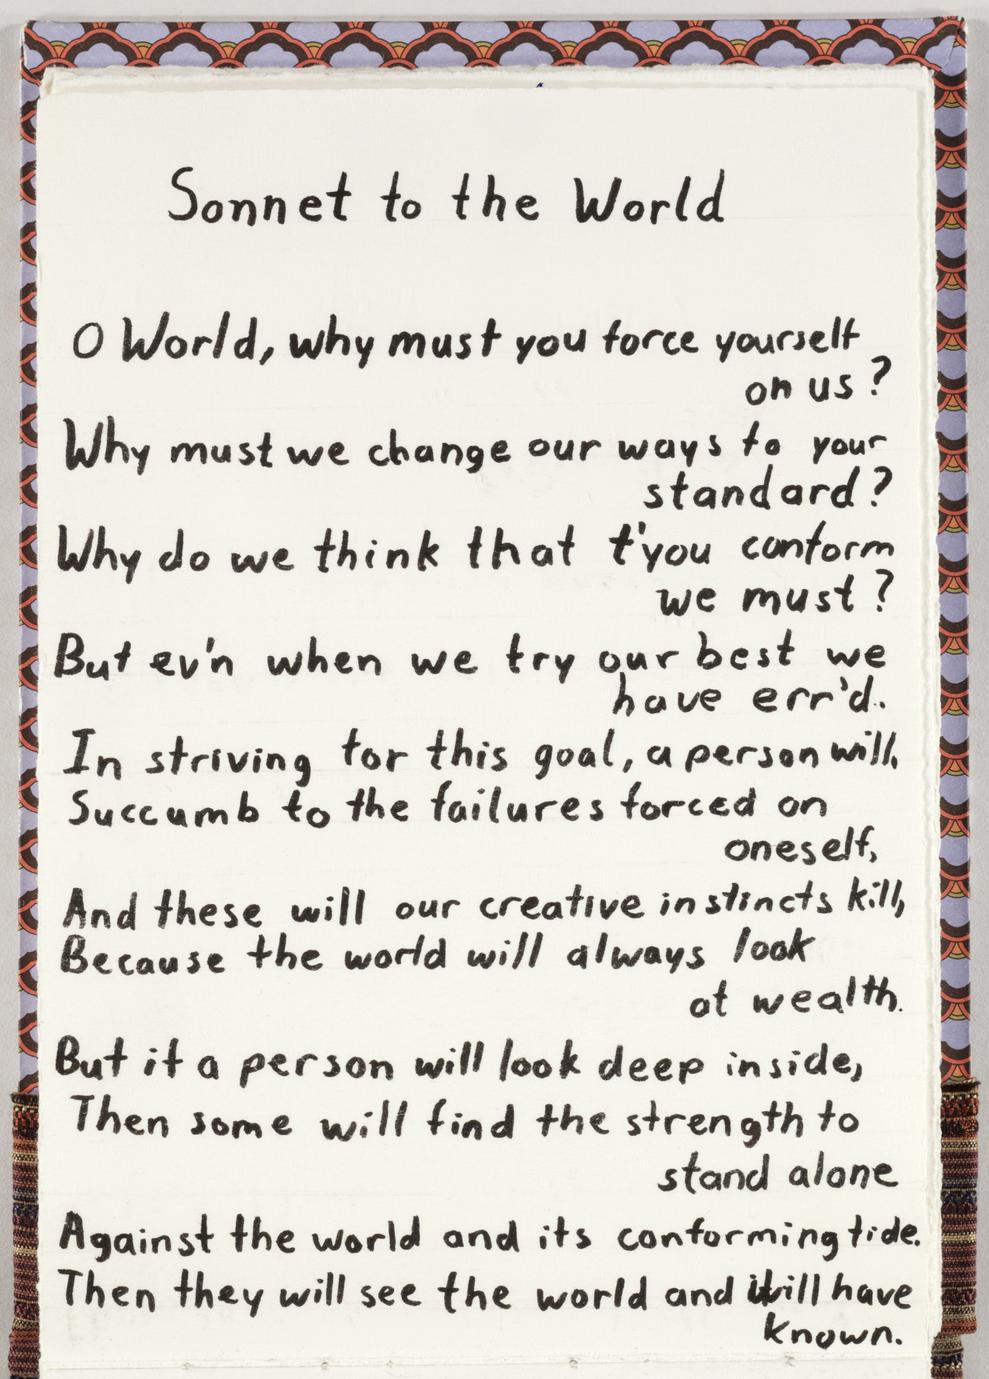 Sonnet to the World
O World, why must you force yourself
on us?
Why must we change our ways to your
standard?
Why do we think that t'you conform
we must?
But ev'n when we try our best we
have err'd.
In striving for this goal, a person will,
Succumb to the failures forced on
oneself,
And these will our creative instincts kill,
Because the world will always look
at wealth.
But if a person will look deep inside,
Then some will find the strength to
stand alone
Against the world and its conforming tide.
Then they will see the world and will have
known.